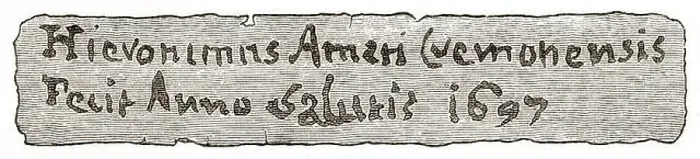 Hieronimus Amati Cremonensis
Fecit Anno Salutis 1697